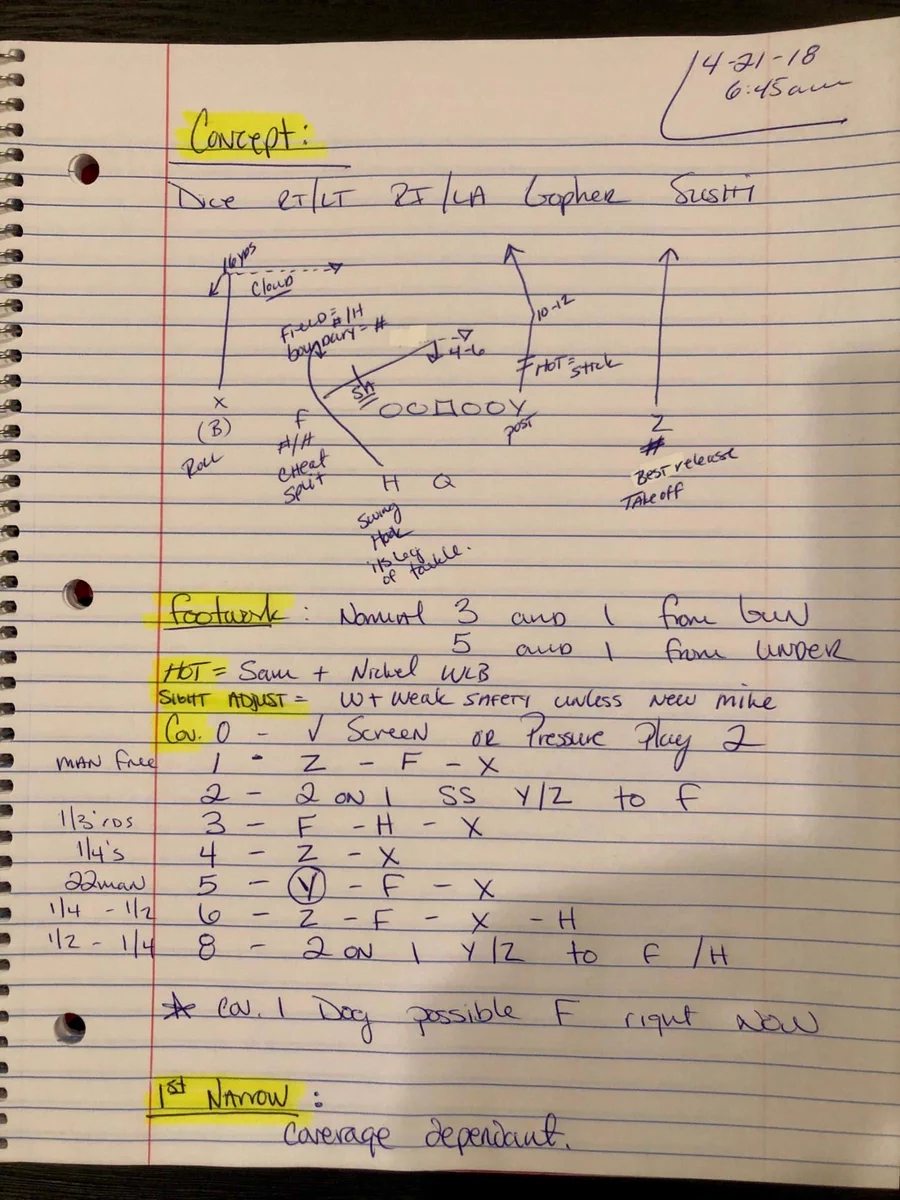 4-21-18
6:45am
Concept:
Dice RT/LT RI/LA Gopher Sushi
16 yds
Cloud
Field = #/H
boundary = #
10-12
4-6
HOT = stick
SA
X
(B)
Roll
F
#/H
CHeat
Split
Y
post
Z
#
Best release
Take off
H Q
Swing
Hook
I/S leg
of tackle.
Footwork: Normal 3 and 1 from Gun
5 and 1 from UNDER
HOT = Sam + Nickel WLB
SIGHT ADJUST = W + weak SAFETY unless new mike
Cov. 0 - √ Screen or Pressure Play 2
MAN free 1 - Z - F - X
2 - 2 ON 1 SS Y/Z to F
1/3'rds 3 - F - H - X
1/4's 4 - Z - X
22man 5 - Y - F - X
1/4 - 1/2 6 - Z - F - X - H
1/2 - 1/4 8 - 2 ON 1 Y/Z to F/H
☆ Cov. 1 Dog possible F right NOW
1st NArrow:
Coverage dependant.